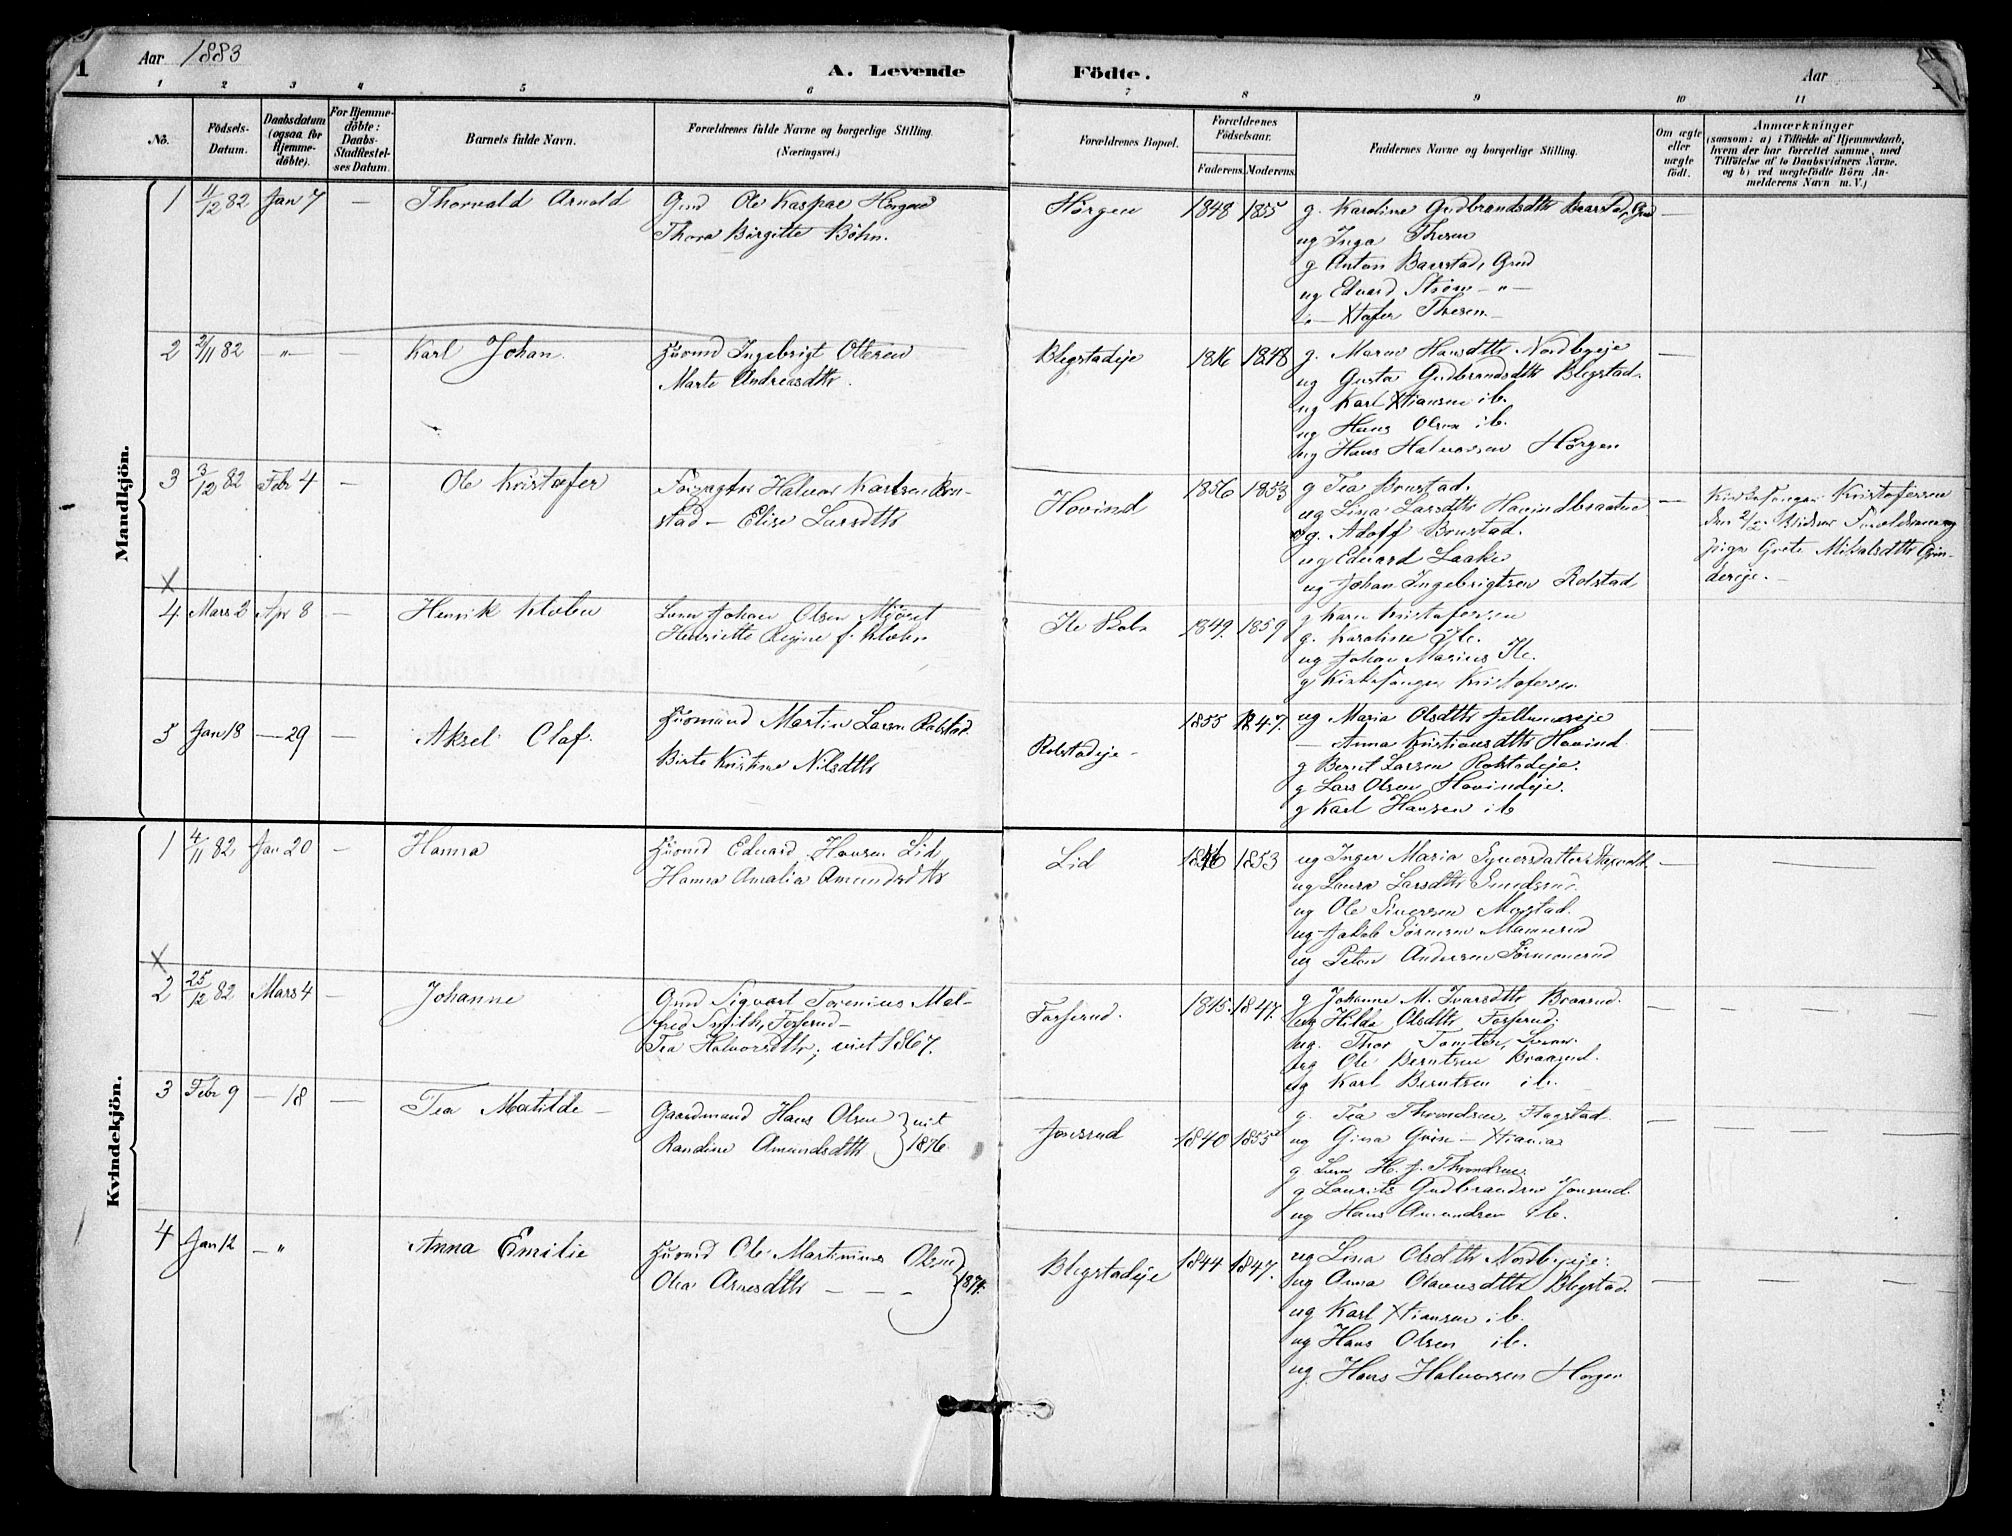 1
Aar 1883
A. Levende
Födte.
Aar
1 2 3 4 5 6 7 8 9 10 11
No.
Födsels-Datum.
Daabsdatum (ogsaa for Hjemmedöbte).
For Hjemmedöbte: Daabs-Stadfæstelses Datum.
Barnets fulde Navn.
Forældrenes fulde Navne og borgerlige Stilling.
(Næringsvei.)
Forældrenes Bopæl.
Forældrenes Födselsaar.
Faderens. Moderens.
Faddernes Navne og borgerlige Stilling.
Om ægte eller uægte födt.
Anmærkninger
(saasom: a) i Tilfælde af Hjemmedaab, hvem der har forrettet samme, med Tilföielse af to Daabsvidners Navne. og b) ved uægtefödte Börn Anmelderens Navn m. V.)
Mandkjön.
1 11/12 82 Jan 7 — Thorvald Arnold
Gmd Ole Kaspar Hörgen
Thora Birgitte Böhn.
Hörgen 1848 1855
g. Karoline Gudbrandsdtr Baarstad, Gmd —
ug Inga Thesen
g Anton Baarstad, Gmd
ug Edvard Ström — „ —
— Xtofer Thesen
2 2/11 82 — „ — Karl Johan.
Husmd Ingebrigt Olsen
Marte Andreasdtr.
Blegstadeje 1816 1848
g. Maren Hansdtr Nordbyeje —
ug Gusta Gudbrandsdtr Blegstad.
ug Karl Xtiansen ib.
ug Hans Olsen ib.
ug Hans Halvorsen Hörgen
3 3/12 82 Febr 4 — Ole Kristofer
Forpagter Halvor Karlsen Bru-
stad — Elise Larsdtr
Hovind 1856 1853
g Tea Brustad.
ug Lina Larsdtr Hovindbraaten
g. Adolf Brustad.
ug Edvard Laake
ug Johan Ingebrigtsen Rolstad
Kirkesanger Kristofersen
pige Grete Mikalsdtr Grin-
dereje.
X
4. Mars 2 Apr 8 — Henrik Kloben
Johan Olsen Mjöset
Henriette Regine f. Kloben
1849. 1859
g Karen Kristofersen
g. Karoline Ile.
ug Johan Marius Ile.
g Kirkesanger Kristofersen
5 Jan 18 — 29 — Aksel Olaf.
Husmand Martin Larsen Rolstad.
Birte Kristine Nilsdtr
Rolstadeje — 1855 1847.
ug Maria Olsdtr
— Anna Kristiansdtr Hovind.
g Bernt Larsen Rolstadeje.
g Lars Olsen Hovindeje.
g Karl Hansen ib
Kvindekjön.
1 4/11 82 Jan 20 — Hanna
Husmd Edvard Hansen Lid
Hanna Amalia Amundsdtr
Lid 1846 1853
ug Inger Maria Syversdatter
ug Laura Larsdtr
ug Ole Siversen Mogstad.
ug Jakob Sörensen
ug Peter Andersen
X
2 25/12 82 Mars 4 — Johanne
Gmd Sigvart Torenius Mal-
fred Smith, Fosserud —
Tea Halvorsdtr; viet 1867.
Fosserud. 1845. 1847.
g Johanne M. Ivarsdtr Braarud.
ug Hilda Olsdtr Fosserud.
ug. Thor Tomter,
ug Ole Berntsen Braarud.
ug Karl Berntsen ib.
3 Febr 9 — 18 — Tea Matilde —
Gaardmand Hans Olsen
Randine Amundsdtr } viet 1876.
Jonsrud 1840 1855
g. Tea Throndsen, Flagstad
ug Gina Grin — Xtiania
g. H. J. Throndsen
g Laurits Gudbrandsen Jonsrud.
ug Hans Amundsen ib.
4 Jan 12 — „ Anna Emilie
Husmd Ole Martinius Olsen
Olea Arnesdtr — — — } 1874.
Blegstadeje 1844 1847.
ug Lina Olsdtr Nordbyeje.
ug Anna Olavusdtr Blegstad.
ug Karl Xtiansen ib.
ug Hans Olsen ib.
ug Hans Halvorsen Horgen